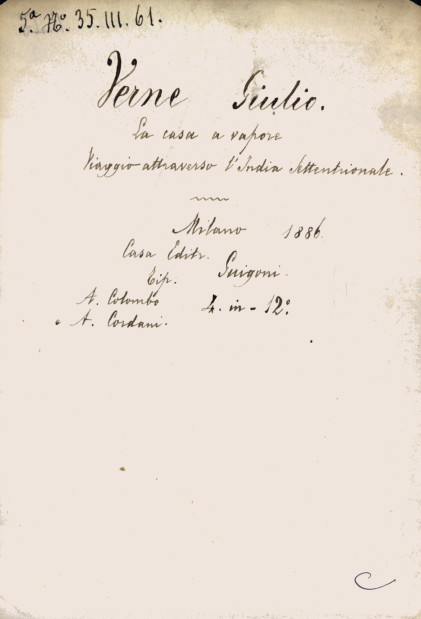 5.ª N.º 35.III.61.
Verne Giulio.
La casa a vapore
Viaggio attraverso l'India settentrionale.
Milano 1886.
Casa Editr. Guigoni.
Tip.
A. Colombo 4. in - 12º
A. Cordani.
C